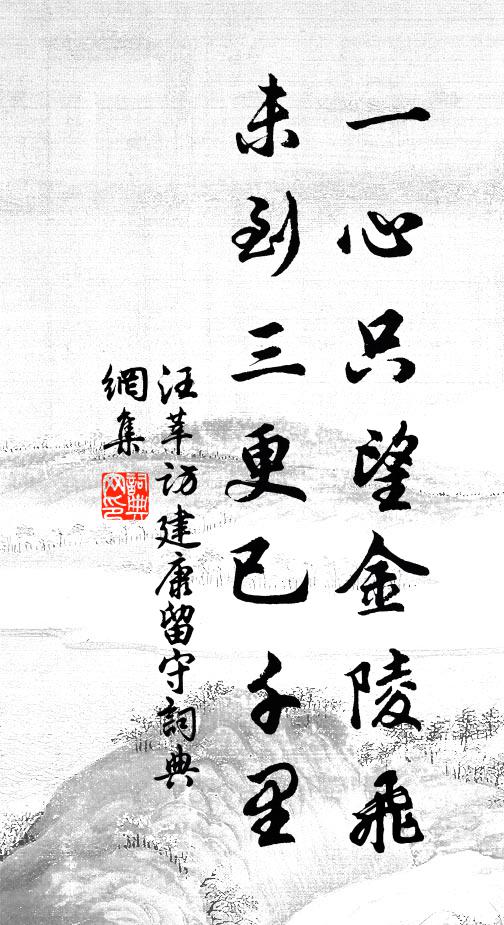 一心只望金陵飛
未到三更已千里
汪莘訪建康留守詞典
網集
詞典網印